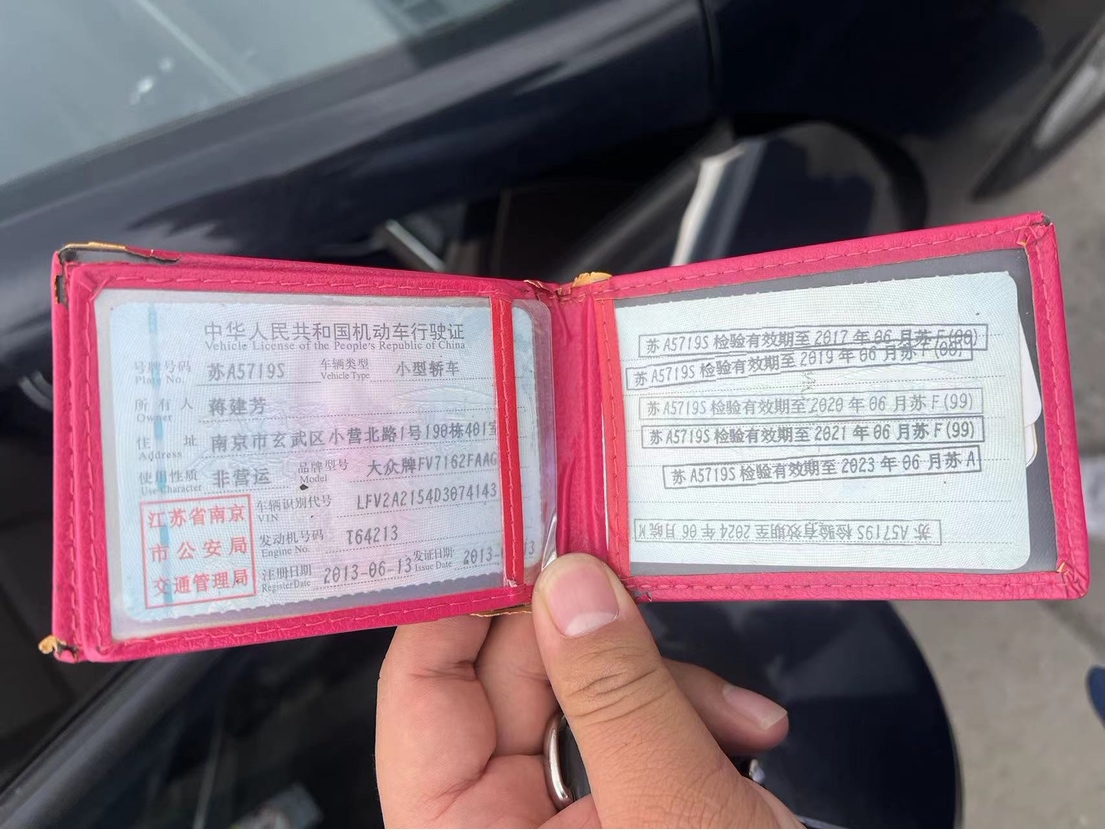 中华人民共和国机动车行驶证
Vehicle License of the People's Republic of China
号牌号码 苏A5719S 车辆类型 小型轿车
Plate No. Vehicle Type
所有人 蒋建芳
Owner
住址 南京市玄武区小营北路1号190栋401室
Address
使用性质 非营运 品牌型号 大众牌FV7162FAAG
Use Character Model
江苏省南京
市公安局
交通管理局
车辆识别代号 LFV2A2154D3074143
VIN
发动机号码 T64213
Engine No.
注册日期 2013-06-13 发证日期 2013-
Register Date Issue Date
苏A5719S 检验有效期至 2017 年 06 月苏 F(99)
苏A5719S 检验有效期至 2019 年 06 月苏 F(00)
苏A5719S 检验有效期至 2020 年 06 月苏 F(99)
苏A5719S 检验有效期至 2021 年 06 月苏 F(99)
苏A5719S 检验有效期至 2023 年 06 月苏 A
苏A5719S 检验有效期至 2024 年 06 月皖 K